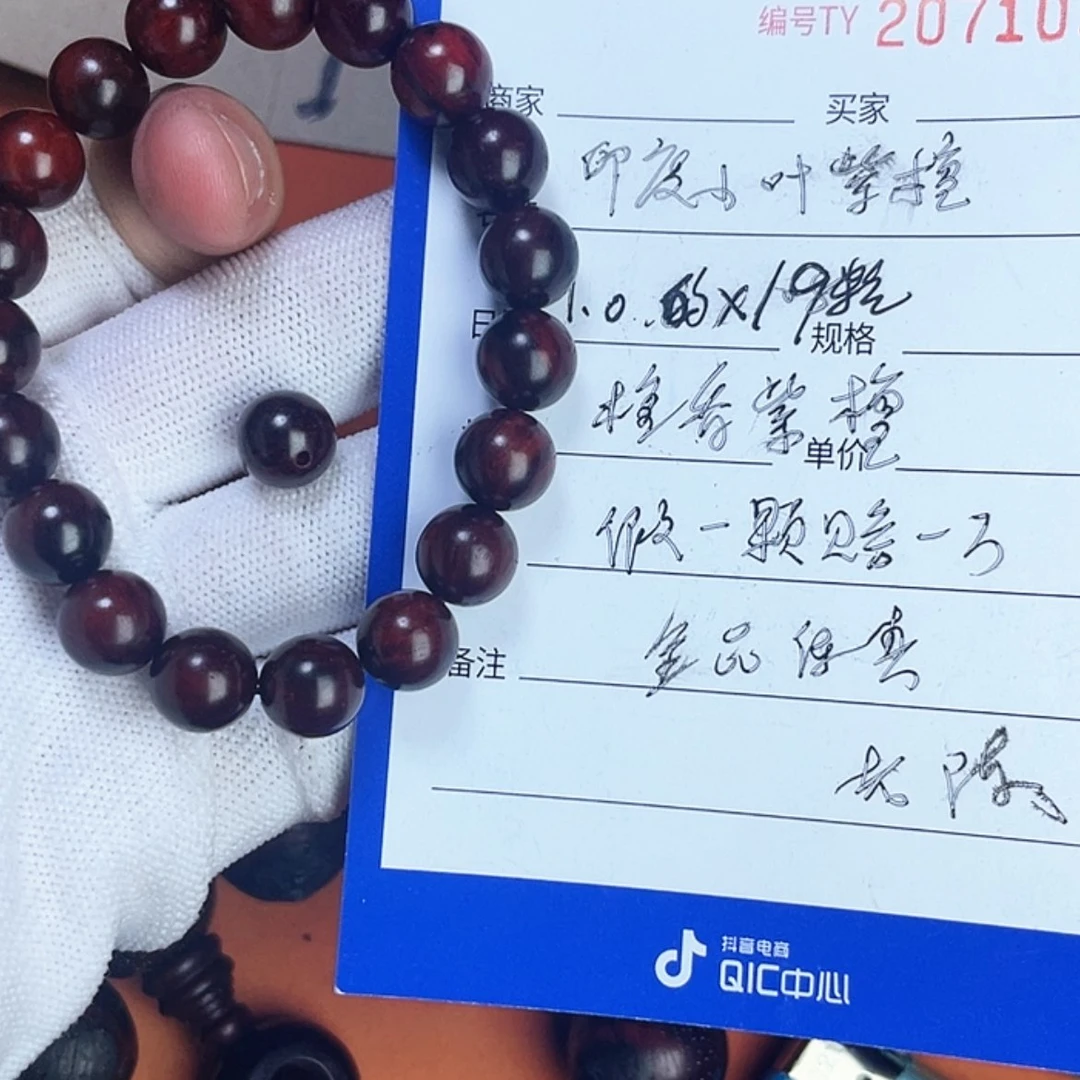 编号TY 20710
商家 买家
印度小叶紫檀
日
1.0.的×19颗
规格
檀香紫檀
单价
假一颗赔一万
备注
金品保真
老陈
抖音电商
QIC中心